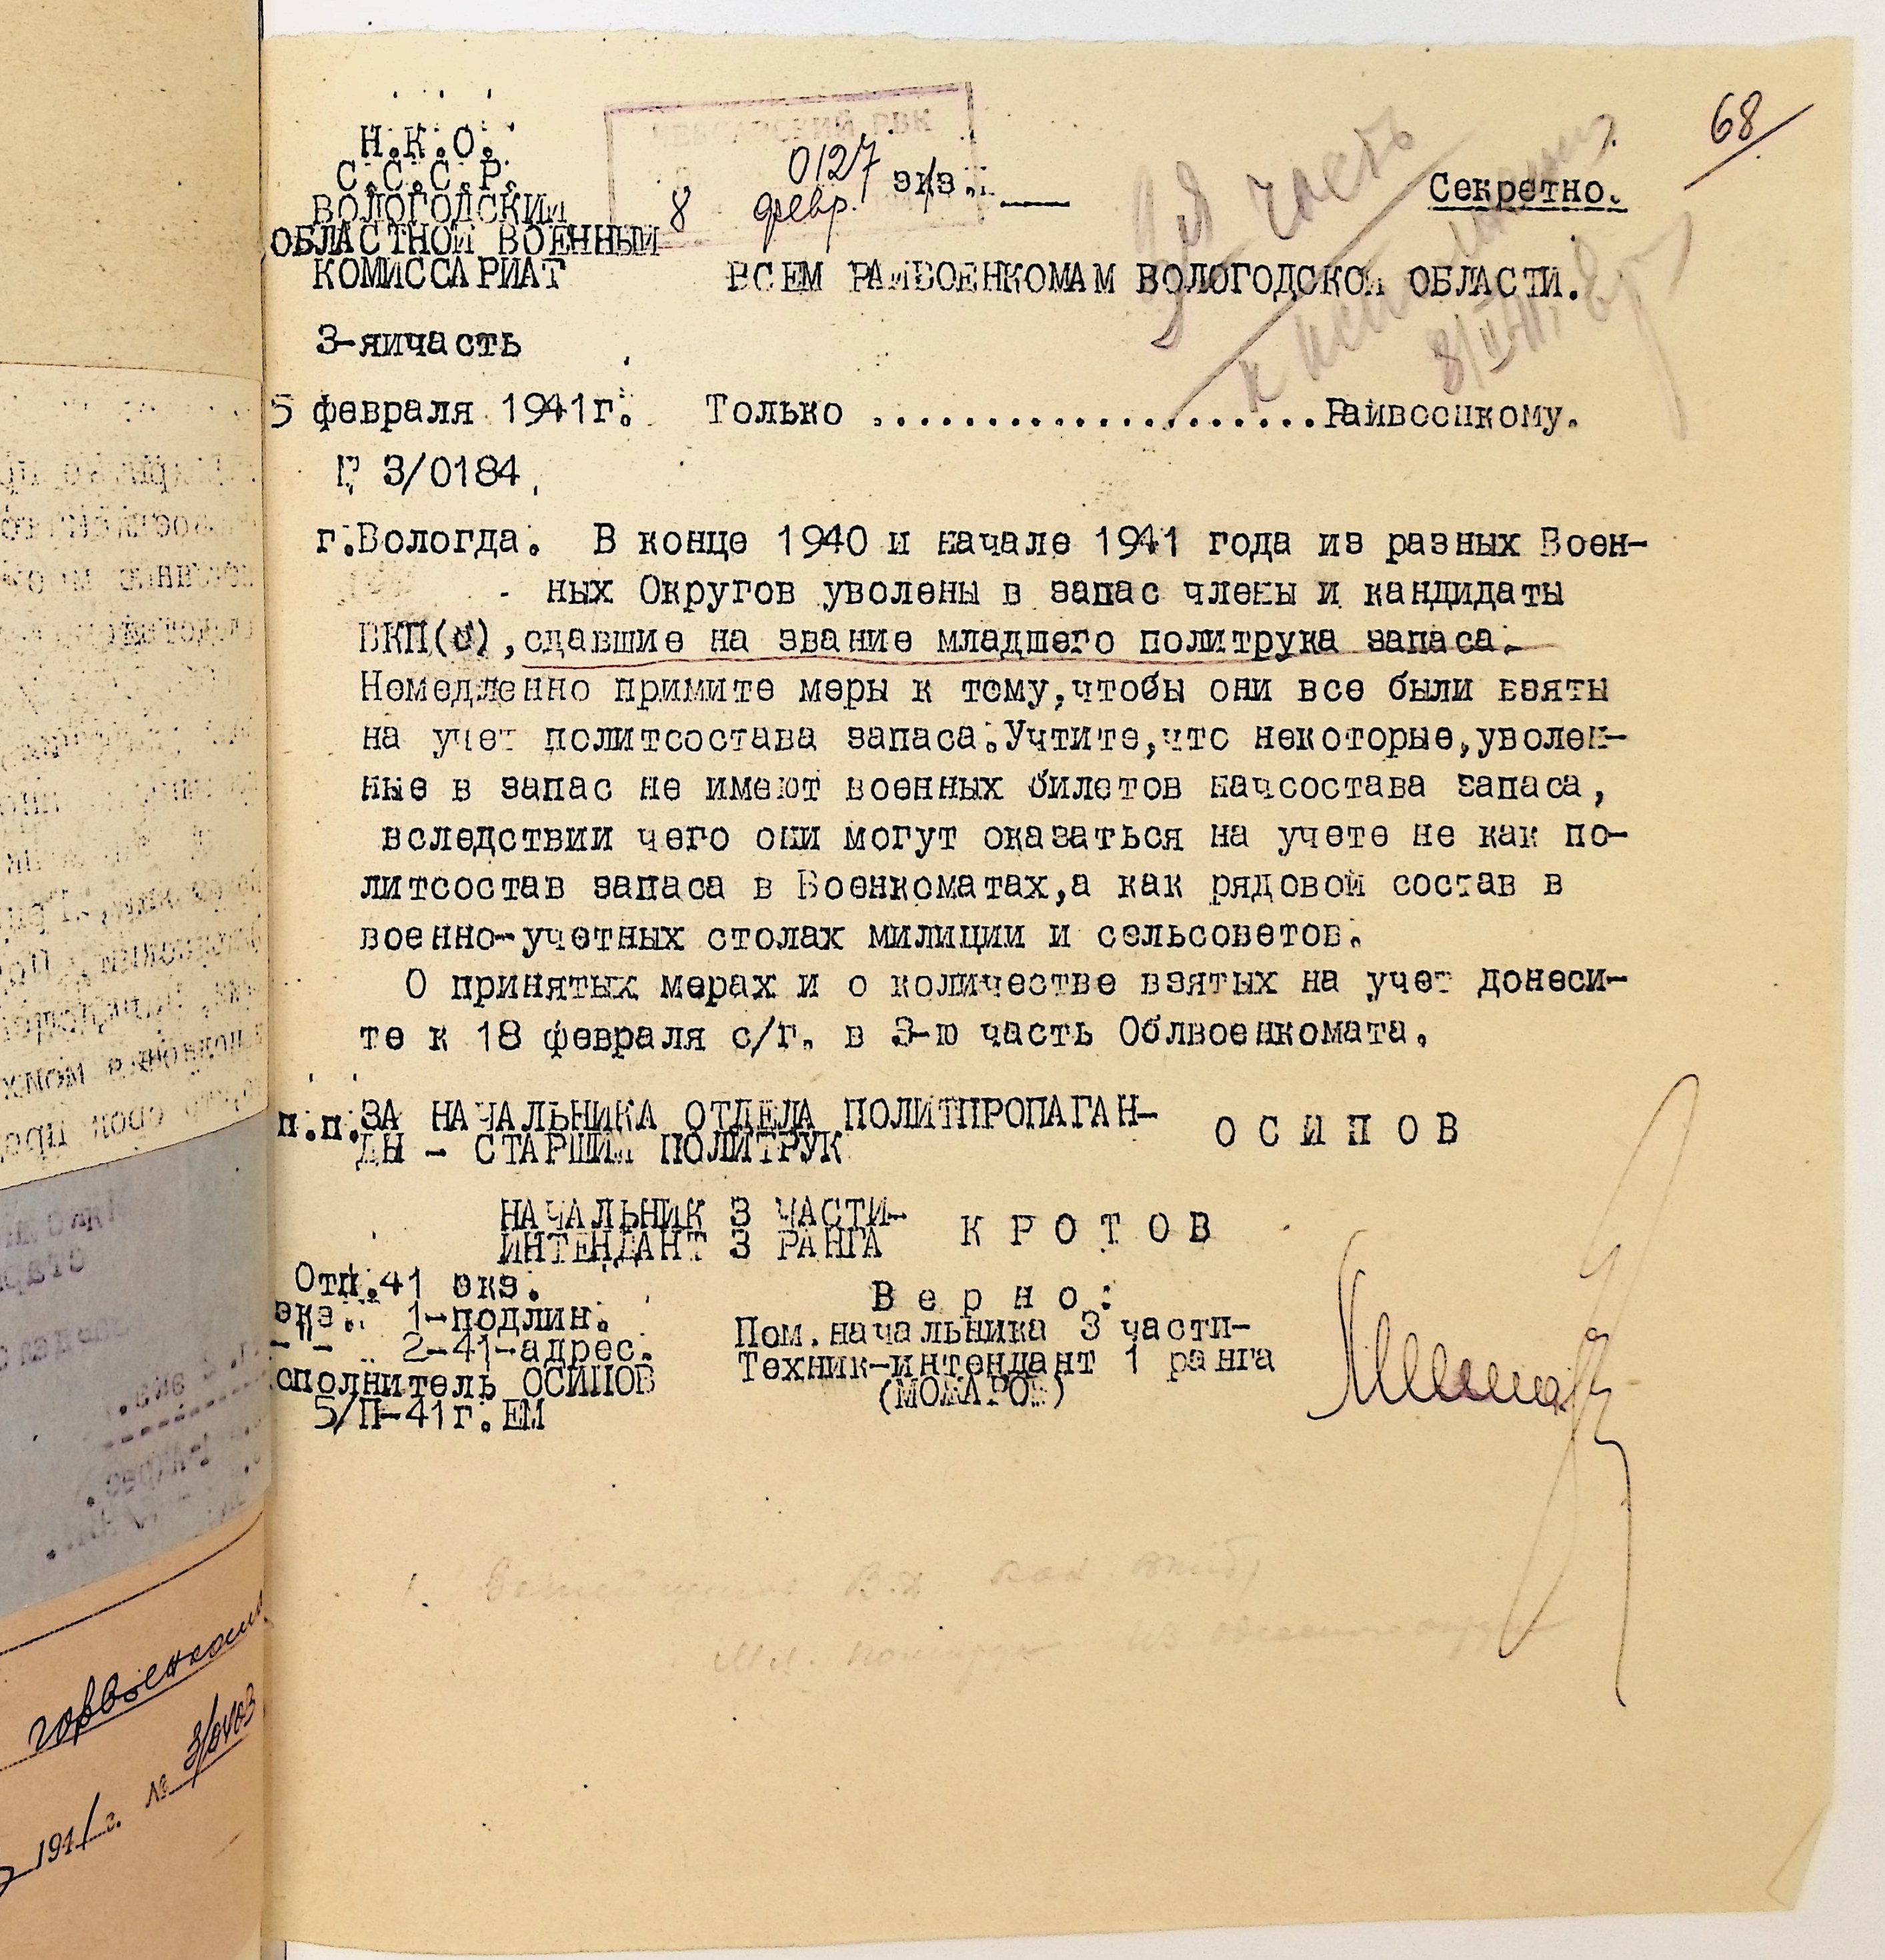 68
Н.К.О.
С.С.С.Р.
ВОЛОГОДСКИЙ
ОБЛАСТНОЙ ВОЕННЫЙ
КОМИССАРИАТ
РВК
0127
экз.
8 февр.
Секретно.
3я часть
к исполнению
8/II-41
ВСЕМ РАЙВОЕНКОМАМ ВОЛОГОДСКОЙ ОБЛАСТИ.
3-яичасть
5 февраля 1941г. Только .....................Райвоенкому.
3/0184
г.Вологда. В конце 1940 и начале 1941 года из разных Воен-
ных Округов уволены в запас члены и кандидаты
ВКП(б),сдавшие на звание младшего политрука запаса.
Немедленно примите меры к тому,чтобы они все были взяты
на учет политсостава запаса.Учтите,что некоторые,уволен-
ные в запас не имеют военных билетов начсостава запаса,
вследствии чего они могут оказаться на учете не как по-
литсостав запаса в Военкоматах,а как рядовой состав в
военно-учетных столах милиции и сельсоветов.
О принятых мерах и о количестве взятых на учет донеси-
те к 18 февраля с/г. в 3-ю часть Облвоенкомата.
п.п.ЗА НАЧАЛЬНИКА ОТДЕЛА ПОЛИТПРОПАГАН-
ДЫ - СТАРШИЙ ПОЛИТРУК О С И П О В
НАЧАЛЬНИК 3 ЧАСТИ-
ИНТЕНДАНТ 3 РАНГА К Р О Т О В
Отп.41 экз.
экз. 1-подлин.
-"- 2-41-адрес.
сполнитель ОСИПОВ
5/П-41г.ЕМ
В е р н о :
Пом.начальника 3 части-
Техник-интендант 1 ранга
(МОЖАРОВ)
горвоенком
1941 г. №